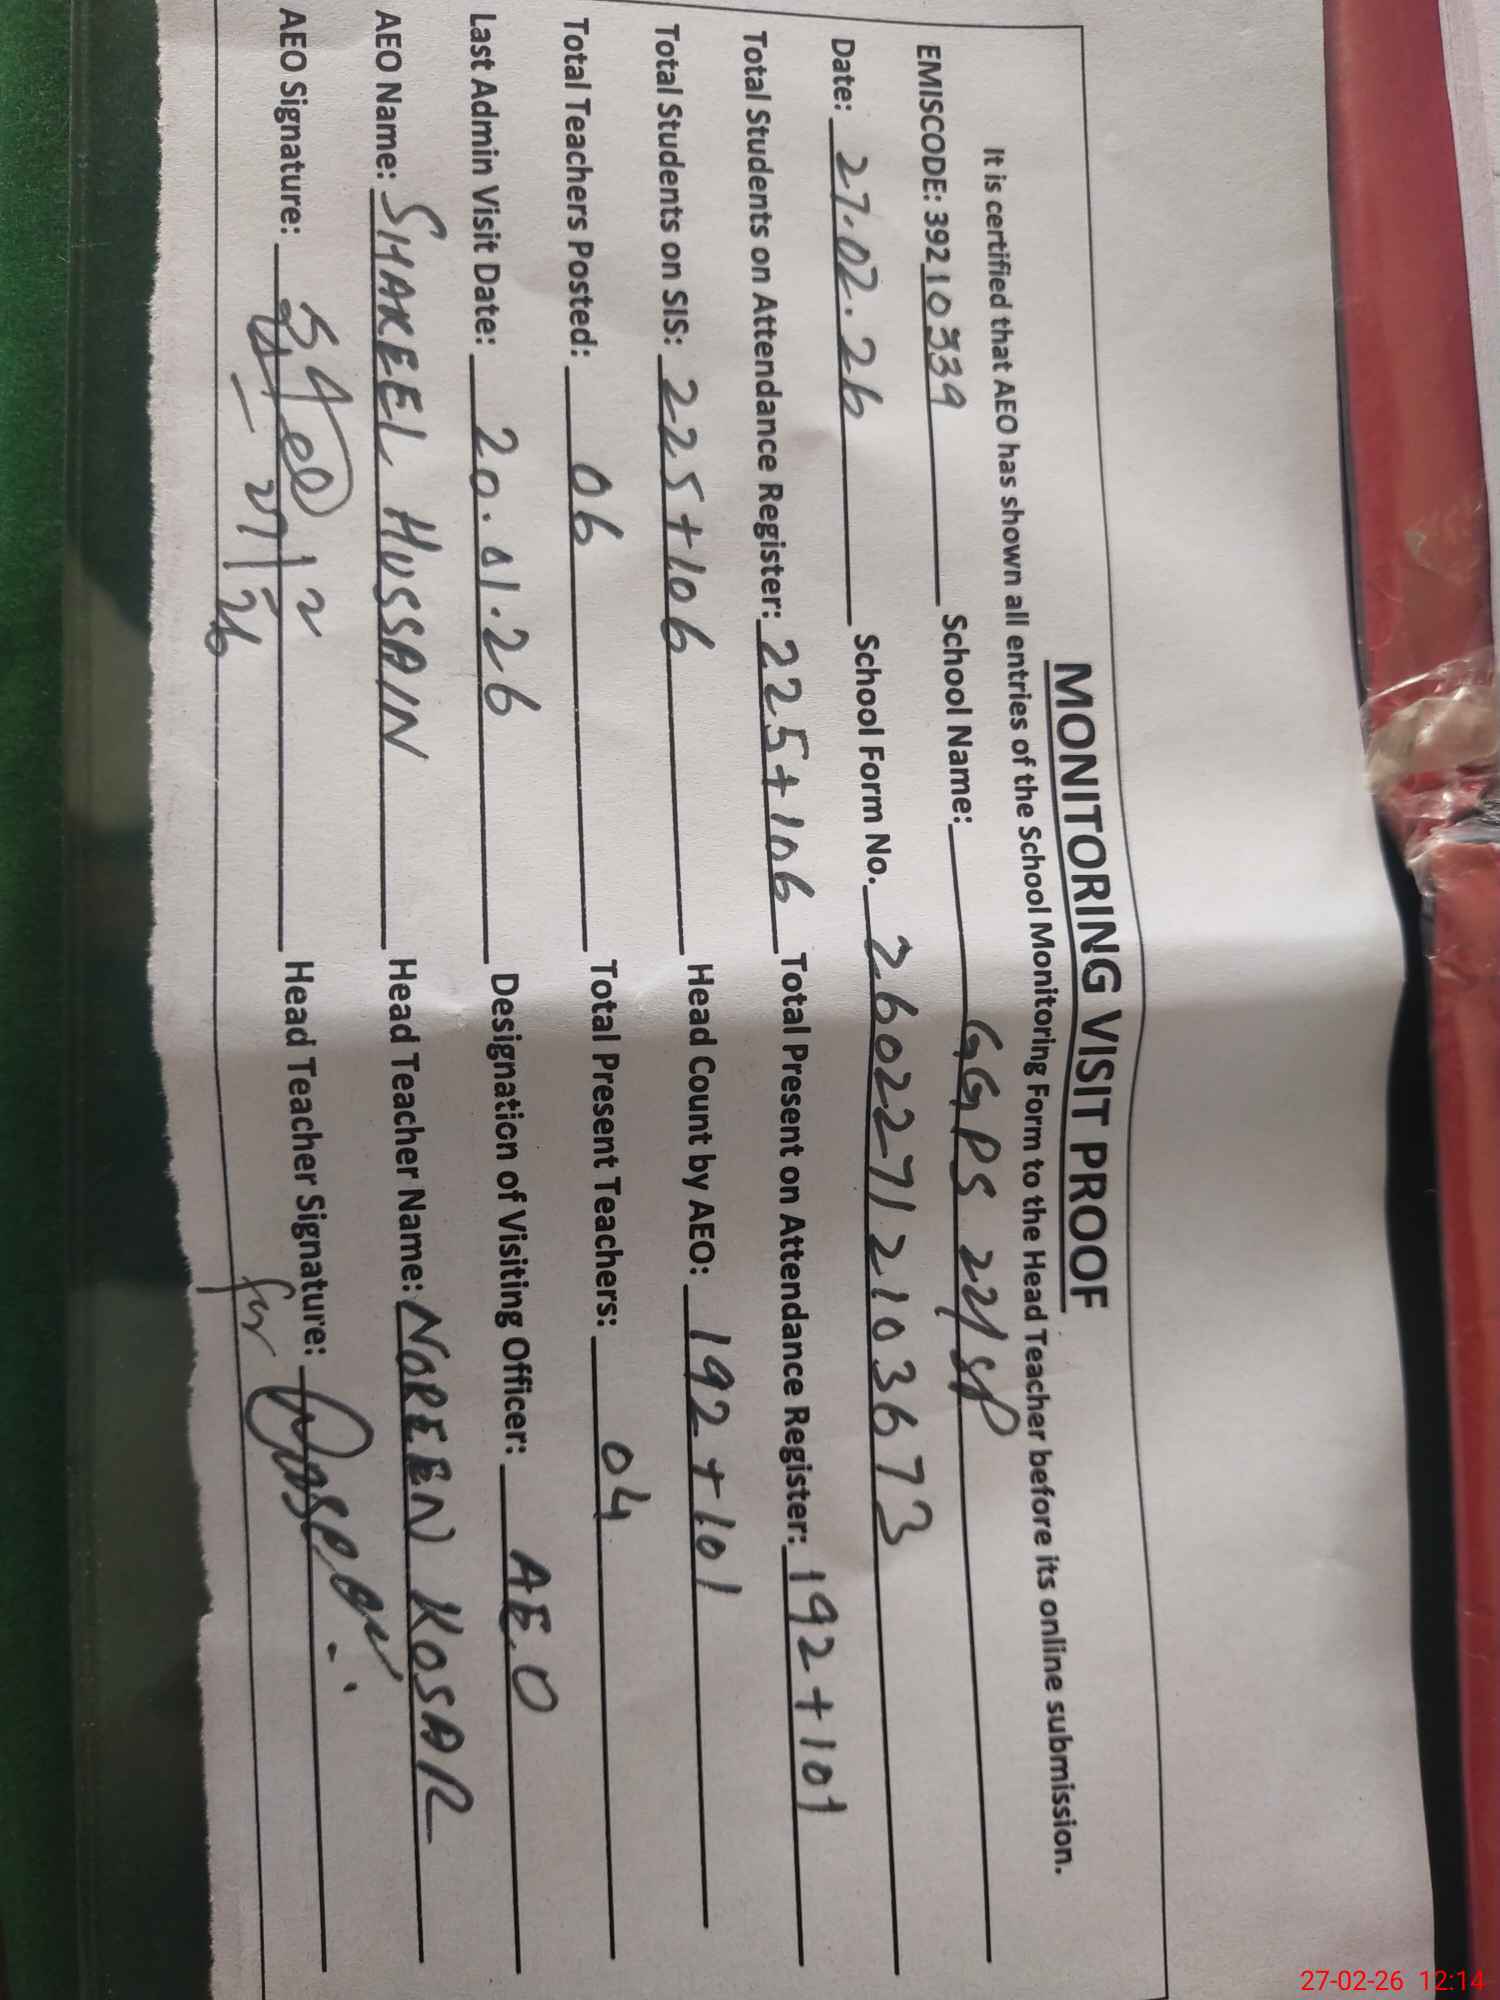 MONITORING VISIT PROOF
It is certified that AEO has shown all entries of the School Monitoring Form to the Head Teacher before its online submission.
EMISCODE: 39210339 School Name: GGPS 221 SP
Date: 27.02.26 School Form No. 26022712103673
Total Students on Attendance Register: 225+106 Total Present on Attendance Register: 192+101
Total Students on SIS: 225+106 Head Count by AEO: 192+101
Total Teachers Posted: 06 Total Present Teachers: 04
Last Admin Visit Date: 20.01.26 Designation of Visiting Officer: AEO
AEO Name: SHAKEEL HUSSAIN Head Teacher Name: NOREEN KOSAR
AEO Signature: Head Teacher Signature:
for
27-02-26 12:14